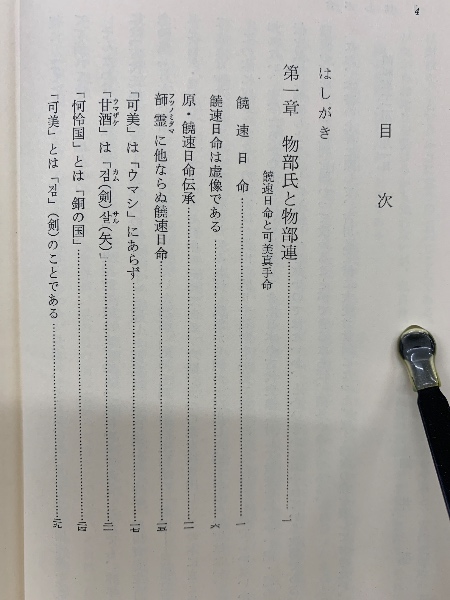 4
目次
はしがき
第一章 物部氏と物部連……一
饒速日命と可美真手命
饒速日命……一
饒速日命は虚像である……六
原・饒速日命伝承……一一
フツノミタマ
韴霊に他ならぬ饒速日命……一五
「可美」は「ウマシ」にあらず……一七
ウマザケ カム サル
「甘酒」は「검(剣)살(矢)」……二一
「怐怜国」とは「銅の国」……二四
「可美」とは「검」(剣)のことである……二九